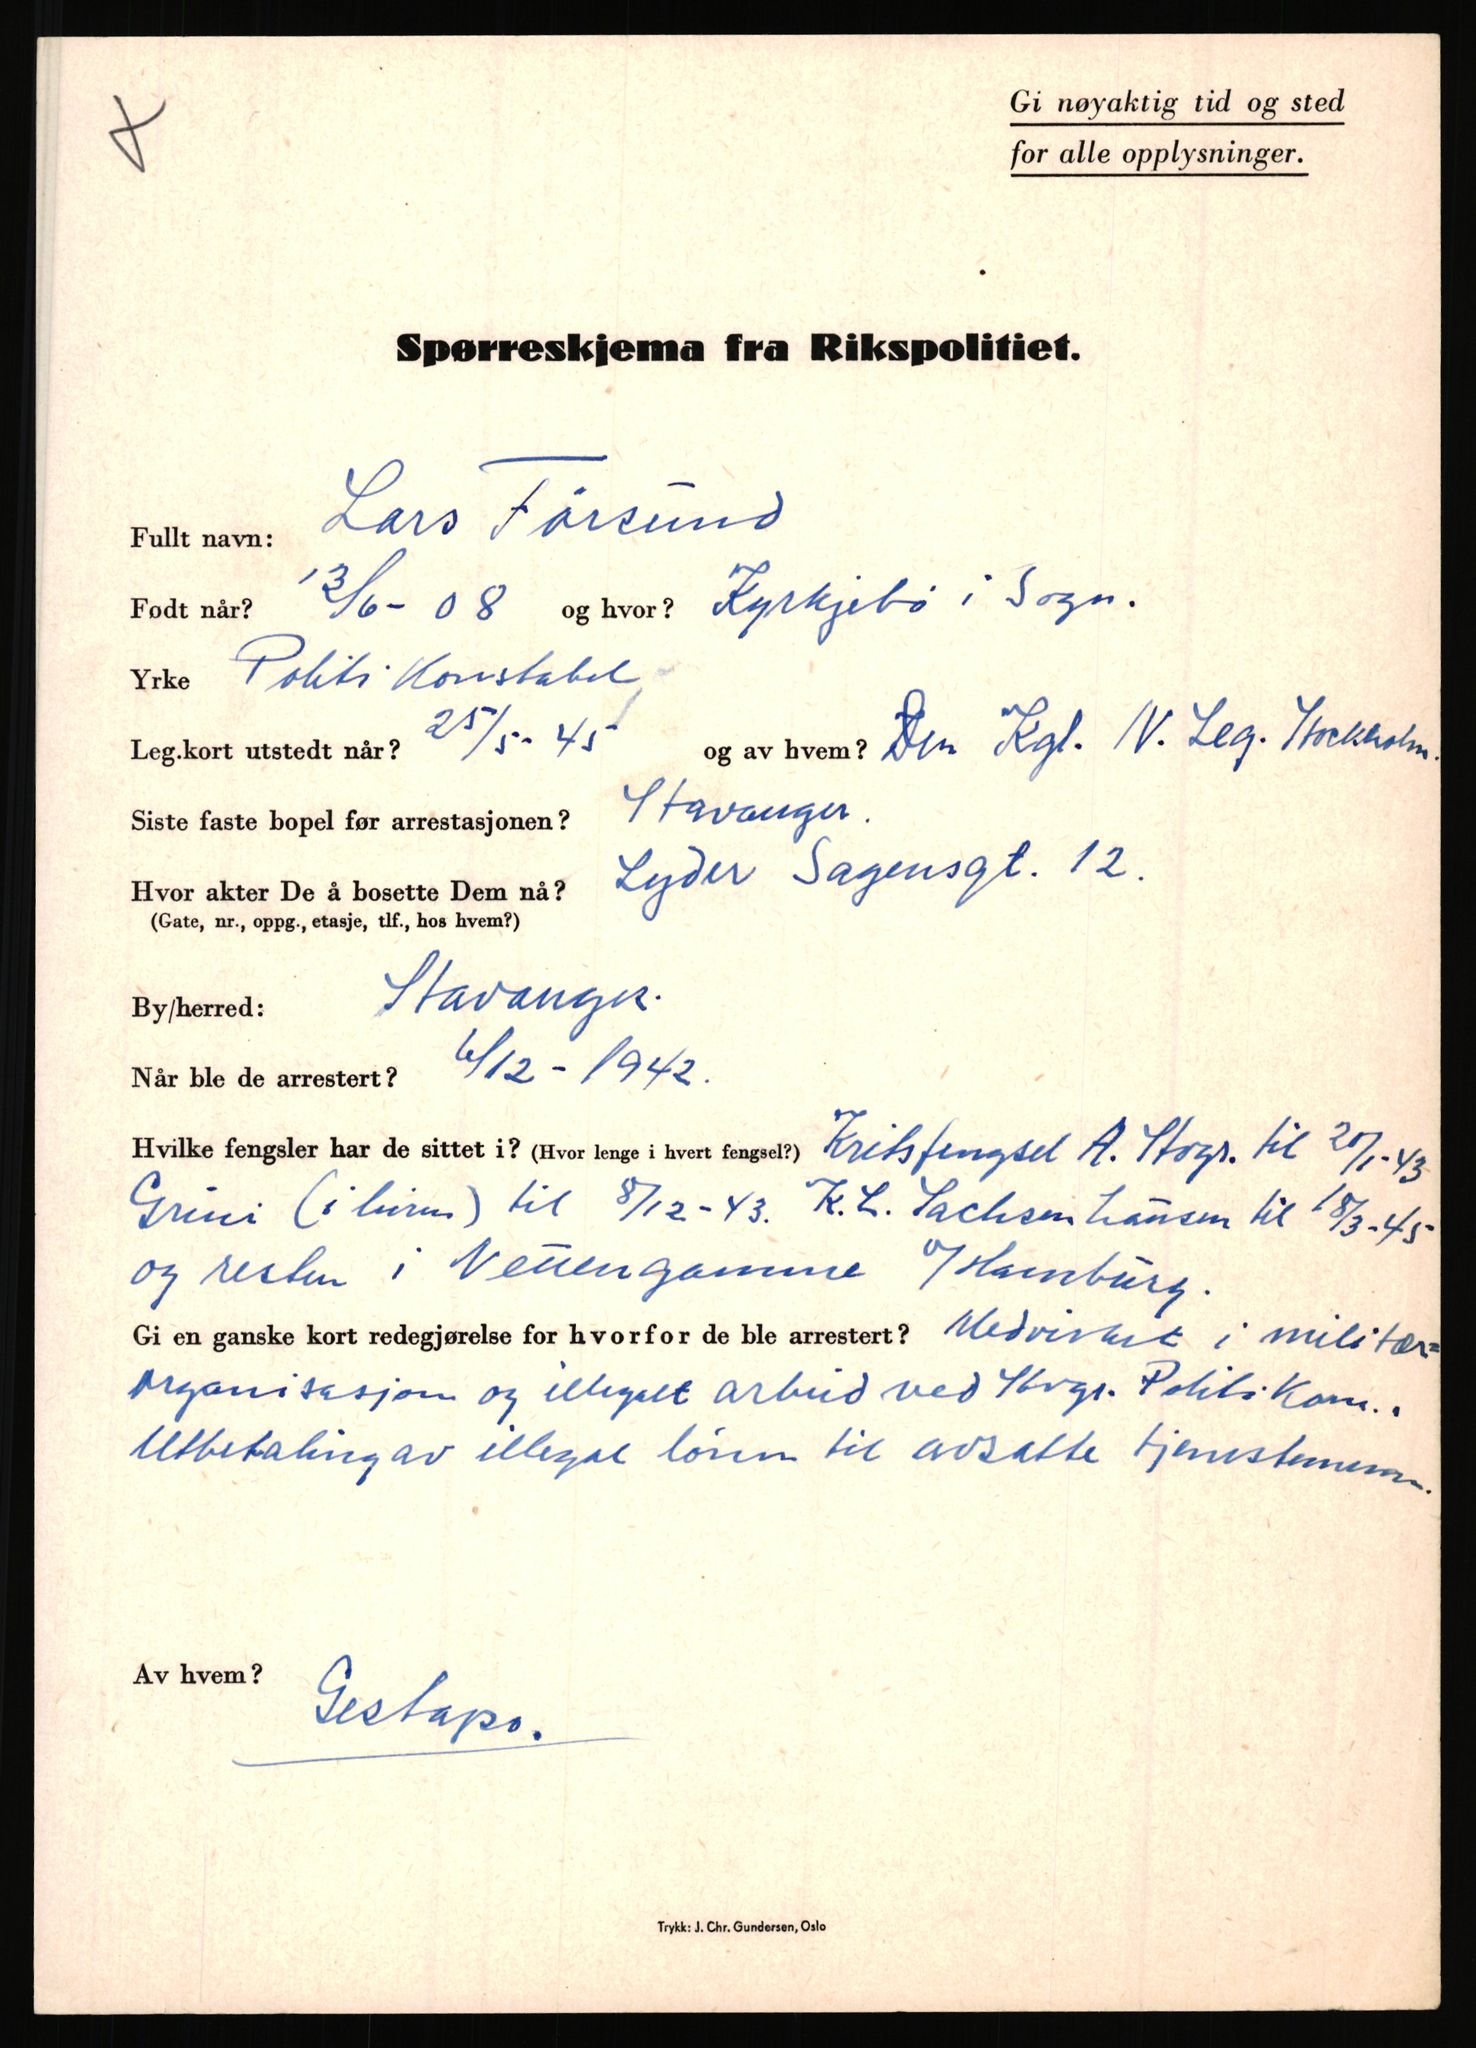 Gi nøyaktig tid og sted
for alle opplysninger.
Spørreskjema fra Rikspolitiet.
Fullt navn: Lars Førsund
Født når? 13/6- 08 og hvor? Kyrkjebø i Sogn.
Yrke Politi Konstabel
Leg.kort utstedt når? 25/5- 45 og av hvem? Den Kgl. N. Leg. Stockholm.
Siste faste bopel før arrestasjonen? Stavanger.
Hvor akter De å bosette Dem nå? Lyder Sagensgt. 12.
(Gate, nr., oppg., etasje, tlf., hos hvem?)
By/herred: Stavanger.
Når ble de arrestert? 6/12 - 1942.
Hvilke fengsler har de sittet i? (Hvor lenge i hvert fengsel?) Kretsfengsel A. Stvgr. til 20/1-43
Grini (i luren) til 8/12-43. K.L. Sachsenhausen til 18/3-45
og resten i Neuengamme v/Hamburg.
Gi en ganske kort redegjørelse for hvorfor de ble arrestert? Medvirket i militær=
organisasjon og illegalt arbeid ved Stvgr. Politi Kam..
Utbetaling av illegal lønn til avsatte tjenestemenn.
Av hvem? Gestapo.
Trykk: J. Chr. Gundersen, Oslo